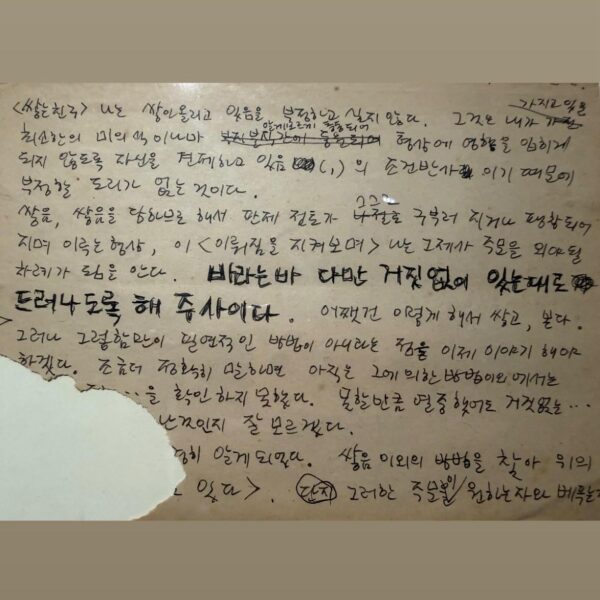 가지고 있을
<쌓는 한국> 나는 쌓아올리고 있음을 부정하고 싶지 않다. 그것은 내가
알게모르게 충동되어
최소한의 미의식이나마 형상에 영향을 입히게
되지 않도록 자신을 견제하고 있음 (,) 의 조건반사 이기 때문에
부정할 도리가 없는 것이다.
쌓음, 쌓음을 당하므로 해서 판제 점토가 그스스로 구부러 지거나 팽창되어
지며 이루는 형상, 이 <이뤄짐을 지켜보며> 나는 그제사 주문을 외야 될
차례가 됨을 안다. 바라는바 다만 거짓없이 있는대로
드러나도록 해 주사이다. 어쨌건 이렇게 해서 쌓고, 본다.
그러나 그렇함만이 필연적인 방법이 아니라는 점을 이제 이야기 해야
하겠다. 조금더 정확히 말하면 아직은 그에 의한 방법이외에서는
을 확인 하지 못했다. 못할만큼 열중했어도 거짓없는…
난것인지 잘 모르겠다.
히 알게 되었다. 쌓음 이외의 방법을 찾아 위의
고 있다>. 단지 그러한 주문을 원하는자와 베푸는